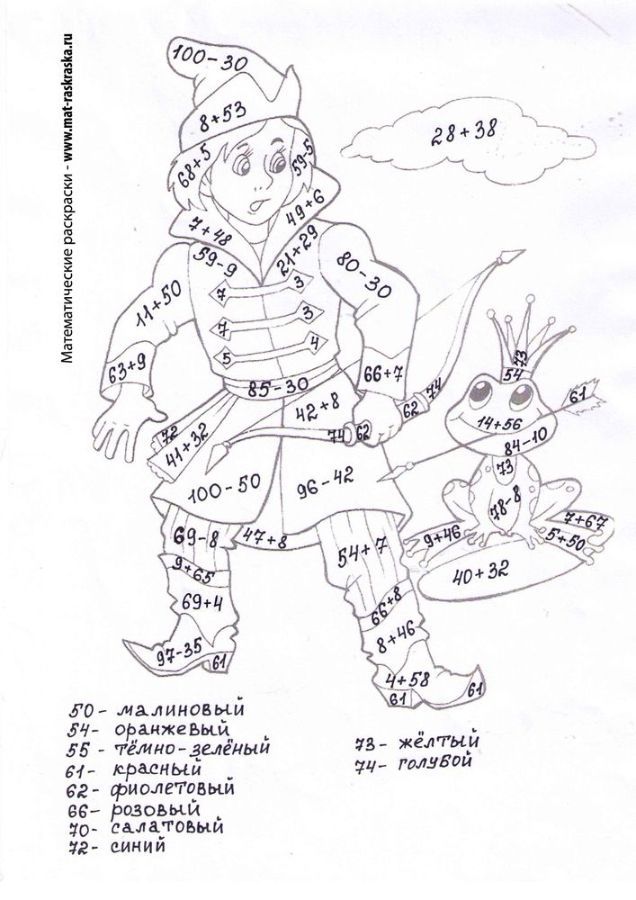 Математические раскраски - www.mat-raskraska.ru
100-30
8+53
28+38
68+5
59-5
49+6
7+48
59-9
21+29
80-30
7
3
11+50
7
3
5
4
73
54
63+9
66+7
85-30
74
61
42+8
62
14+56
72
74
62
84-10
41+32
73
100-50
96-42
78-8
69-8
47+8
54+7
9+46
7+67
5+50
9+65
40+32
69+4
66+8
8+46
97-35
61
4+58
61
61
50- малиновый
54- оранжевый
55- тёмно-зелёный
61- красный
62- фиолетовый
66- розовый
70- салатовый
72- синий
73- жёлтый
74- голубой